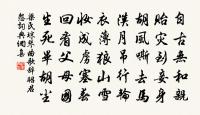 自古無和親
貽災到妾身
胡風嘶去馬
漢月弔行輪
衣薄狼山雪
妝成虜塞春
回看父母國
生死畢胡塵
梁氏瓊琴曲歌辭昭君
怨詞典網書